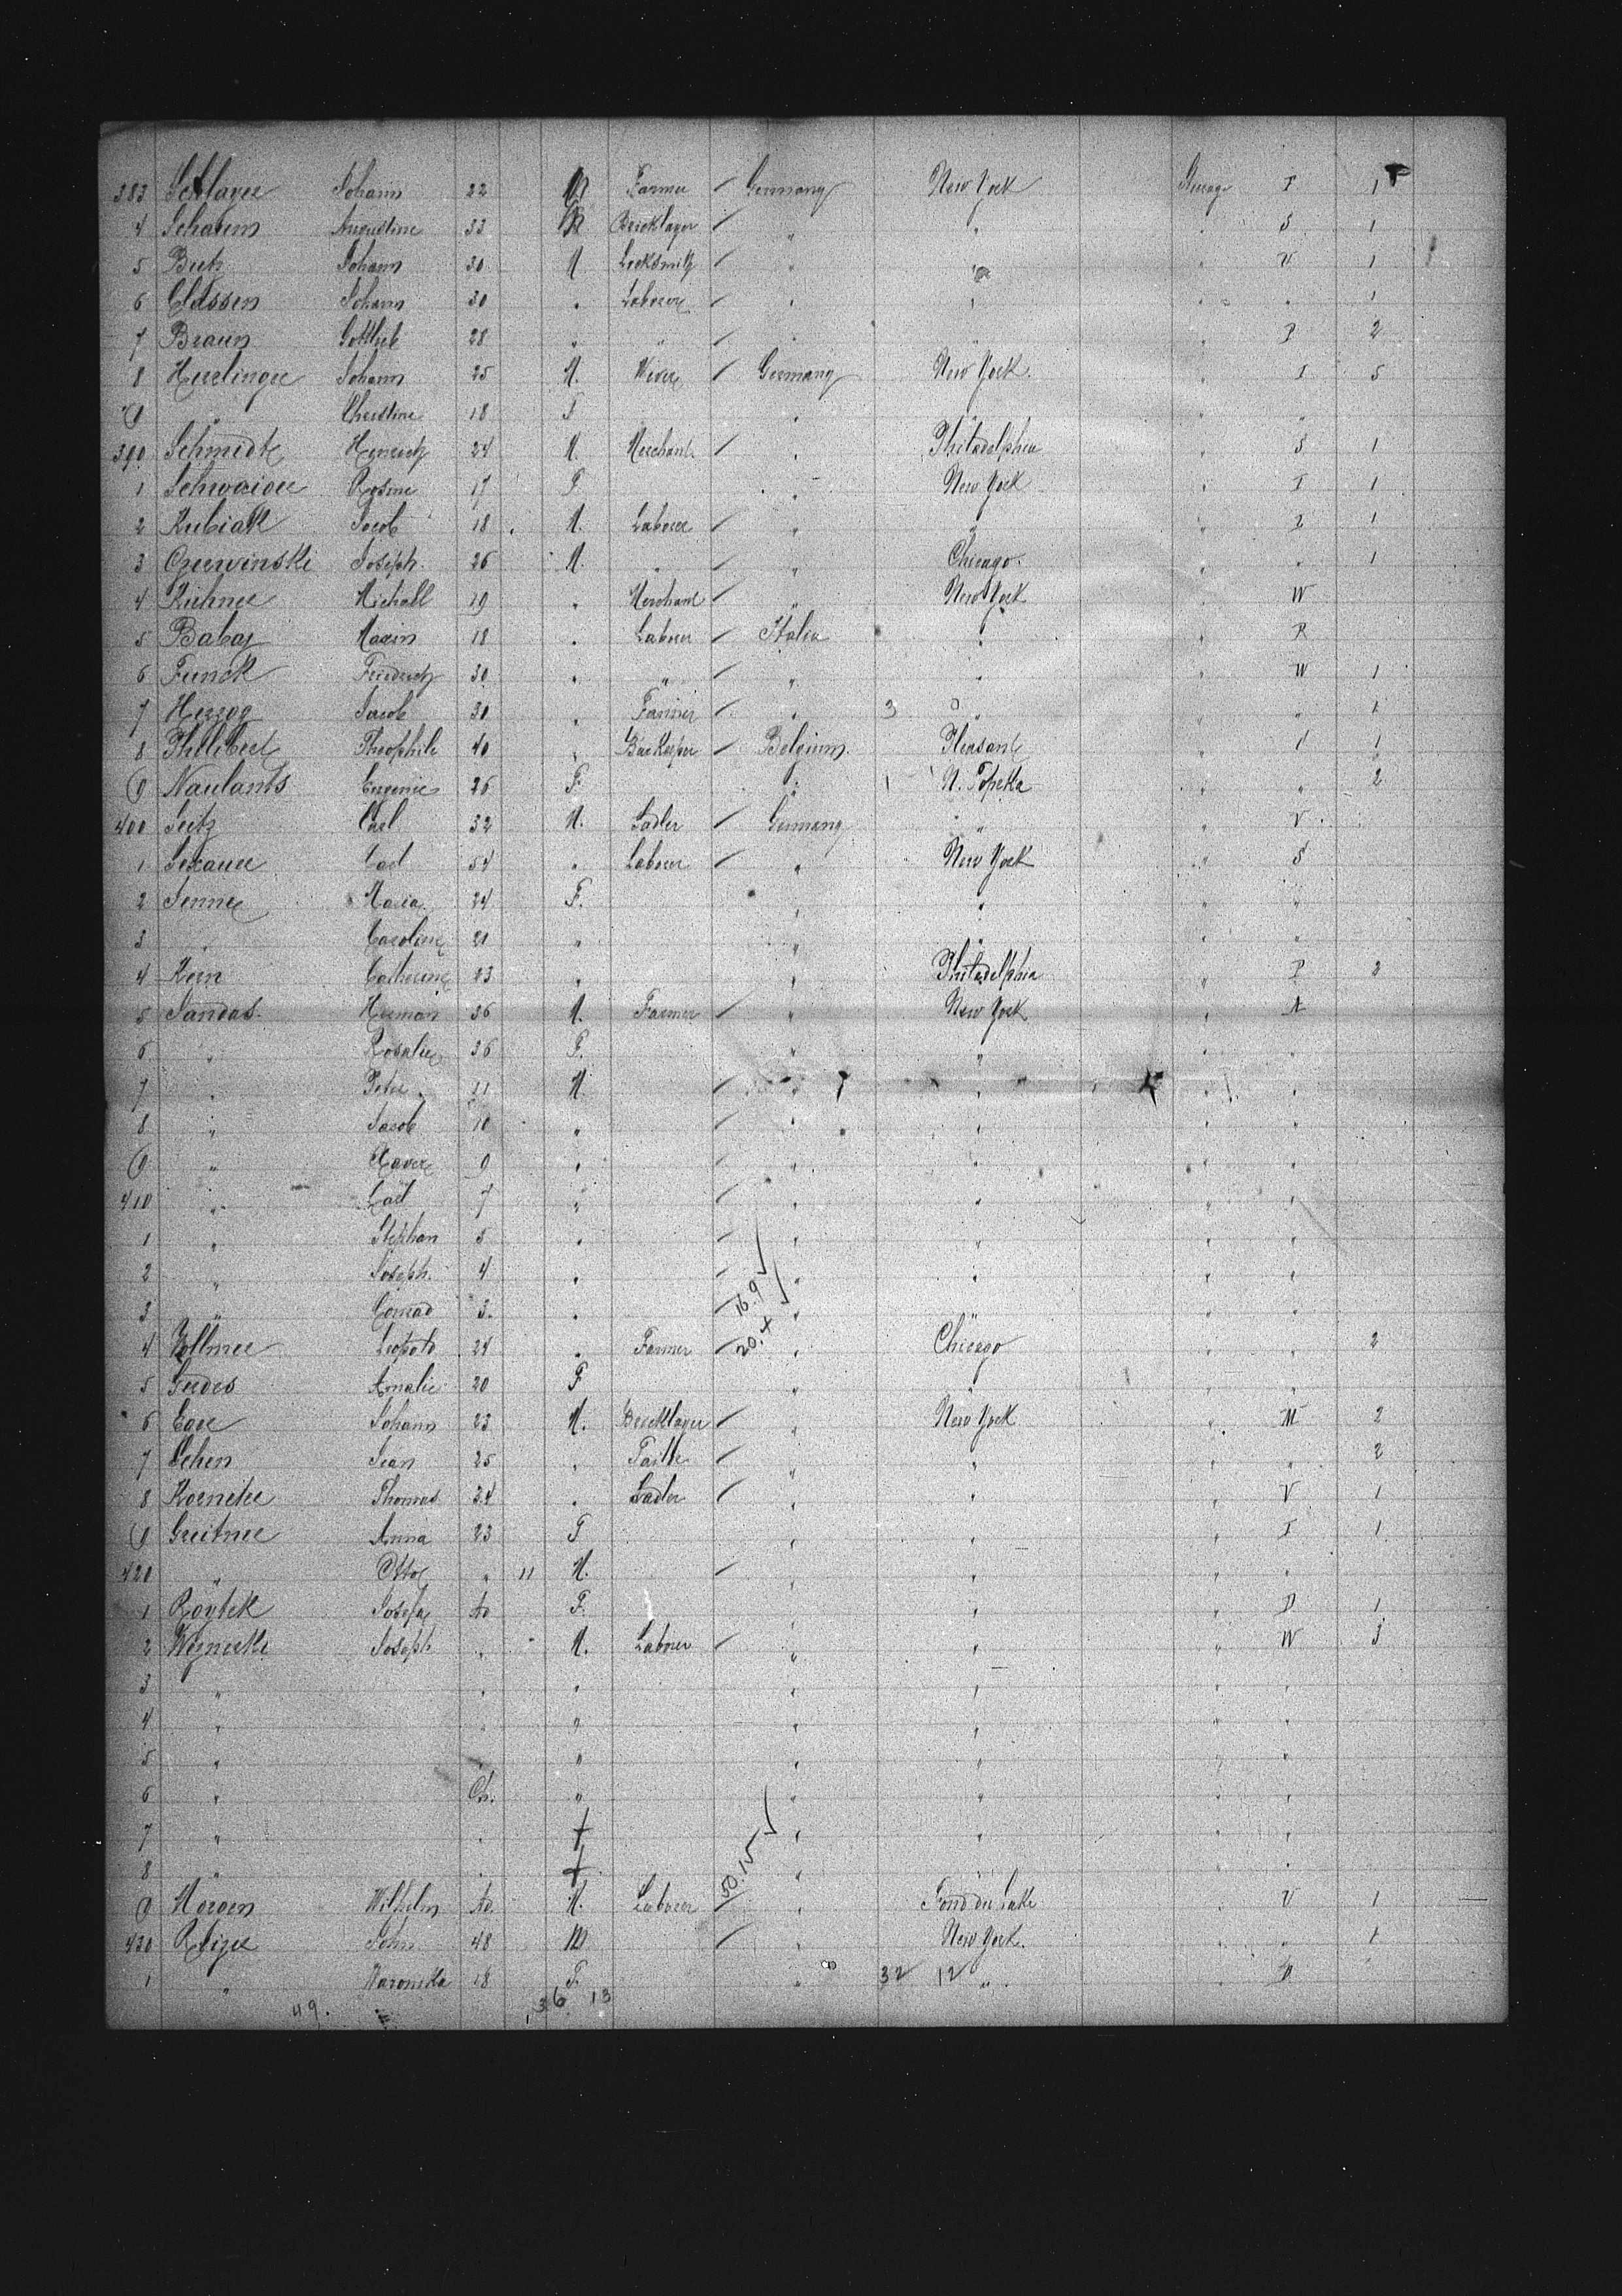 383 Schlager Johann 22 M Farmer / Germany New York Steerage T 1
4 Schaum Augustine 33 M Bricklayer / " " " S 1
5 Butz Johann 30 M Locksmith / " " " V 1
6 Classen Johann 30 " Laborer / " " " " 1
7 Braun Gottlieb 28 " " / " " " P 2
8 Herlinger Johann 25 M. Wever / Germany New York. " T 5
9 " Christine 18 F " " " "
390 Schmidt Heinrich 24 M. Merchant / " Philadelphia " S 1
1 Schwaiger Rosine 17 F " New York " T 1
2 Kubiak Jacob 18 M. Laborer / " " " P 1
3 Czerwinski Joseph. 26 M. " / " Chicago. " " 1
4 Kirchner Michael 19 " Merchant / " New York " W
5 Babaj Maxin 18 " Laborer / Italia " " R
6 Funck Friedrich 30 " " / " " " W 1
7 Herzog Jacob 30 " Farmer / " 3 " " " 1
8 Philibert Theophile 40 " Barkeeper / Belgium. Pleasant " " 1
9 Naulants Eugenie 26 F. " 1 N. Topeka " " 2
400 Seitz Carl 32 M. Sadler / Germany " " V
1 Lexauer Carl 54 " Laborer / " New York " S
2 Jenner Maria 24 F. " " " "
3 " Caroline 21 " " " " "
4 Kern Catherine 23 " " Philadelphia " P 2
5 Sandas Herman 36 M. Farmer / " New York " A
6 " Rosalie 36 F. " " " "
7 " Peter 11 M / " " " "
8 " Jacob 10 " / " " " "
9 " Xaver 9 " / " " " "
410 " Carl 7 " / " " " "
1 " Stephan 5 " / " " " "
2 " Joseph. 4 " / " " " "
3 " Conrad 3. " / 16.9 " " " "
4 Vollmer Leopold 24 " Farmer / 20.4 " Chicago " " 2
5 Gerdes Amalie 20 F " " " "
6 Eger Johann 23 M. Bricklayer / " New York " M 2
7 Schen Jean 25 " / " " " " 2
8 Koeniter Thomas 24 " Sadler / " " " V 1
9 Greitner Anna 23 F " " " T 1
420 " Otto " 11 M. / " " " "
1 Roytek Josefa Ad F. " " " P 1
2 Joseph " M. Laborer / " " " W 3
3 " " " " " " "
4 " " " " " " "
5 " " " " " " "
6 " Ch. " " " " "
7 " " + " " " "
8 " " + 50.15 " " " "
9 Morgen Wilhelm Ad. M. Laborer / " Fond du Lake " V 1
430 John 48 M / " New York. " " 1
1 " Maronika 18 F. " 32 12 " " P
49. 36 13